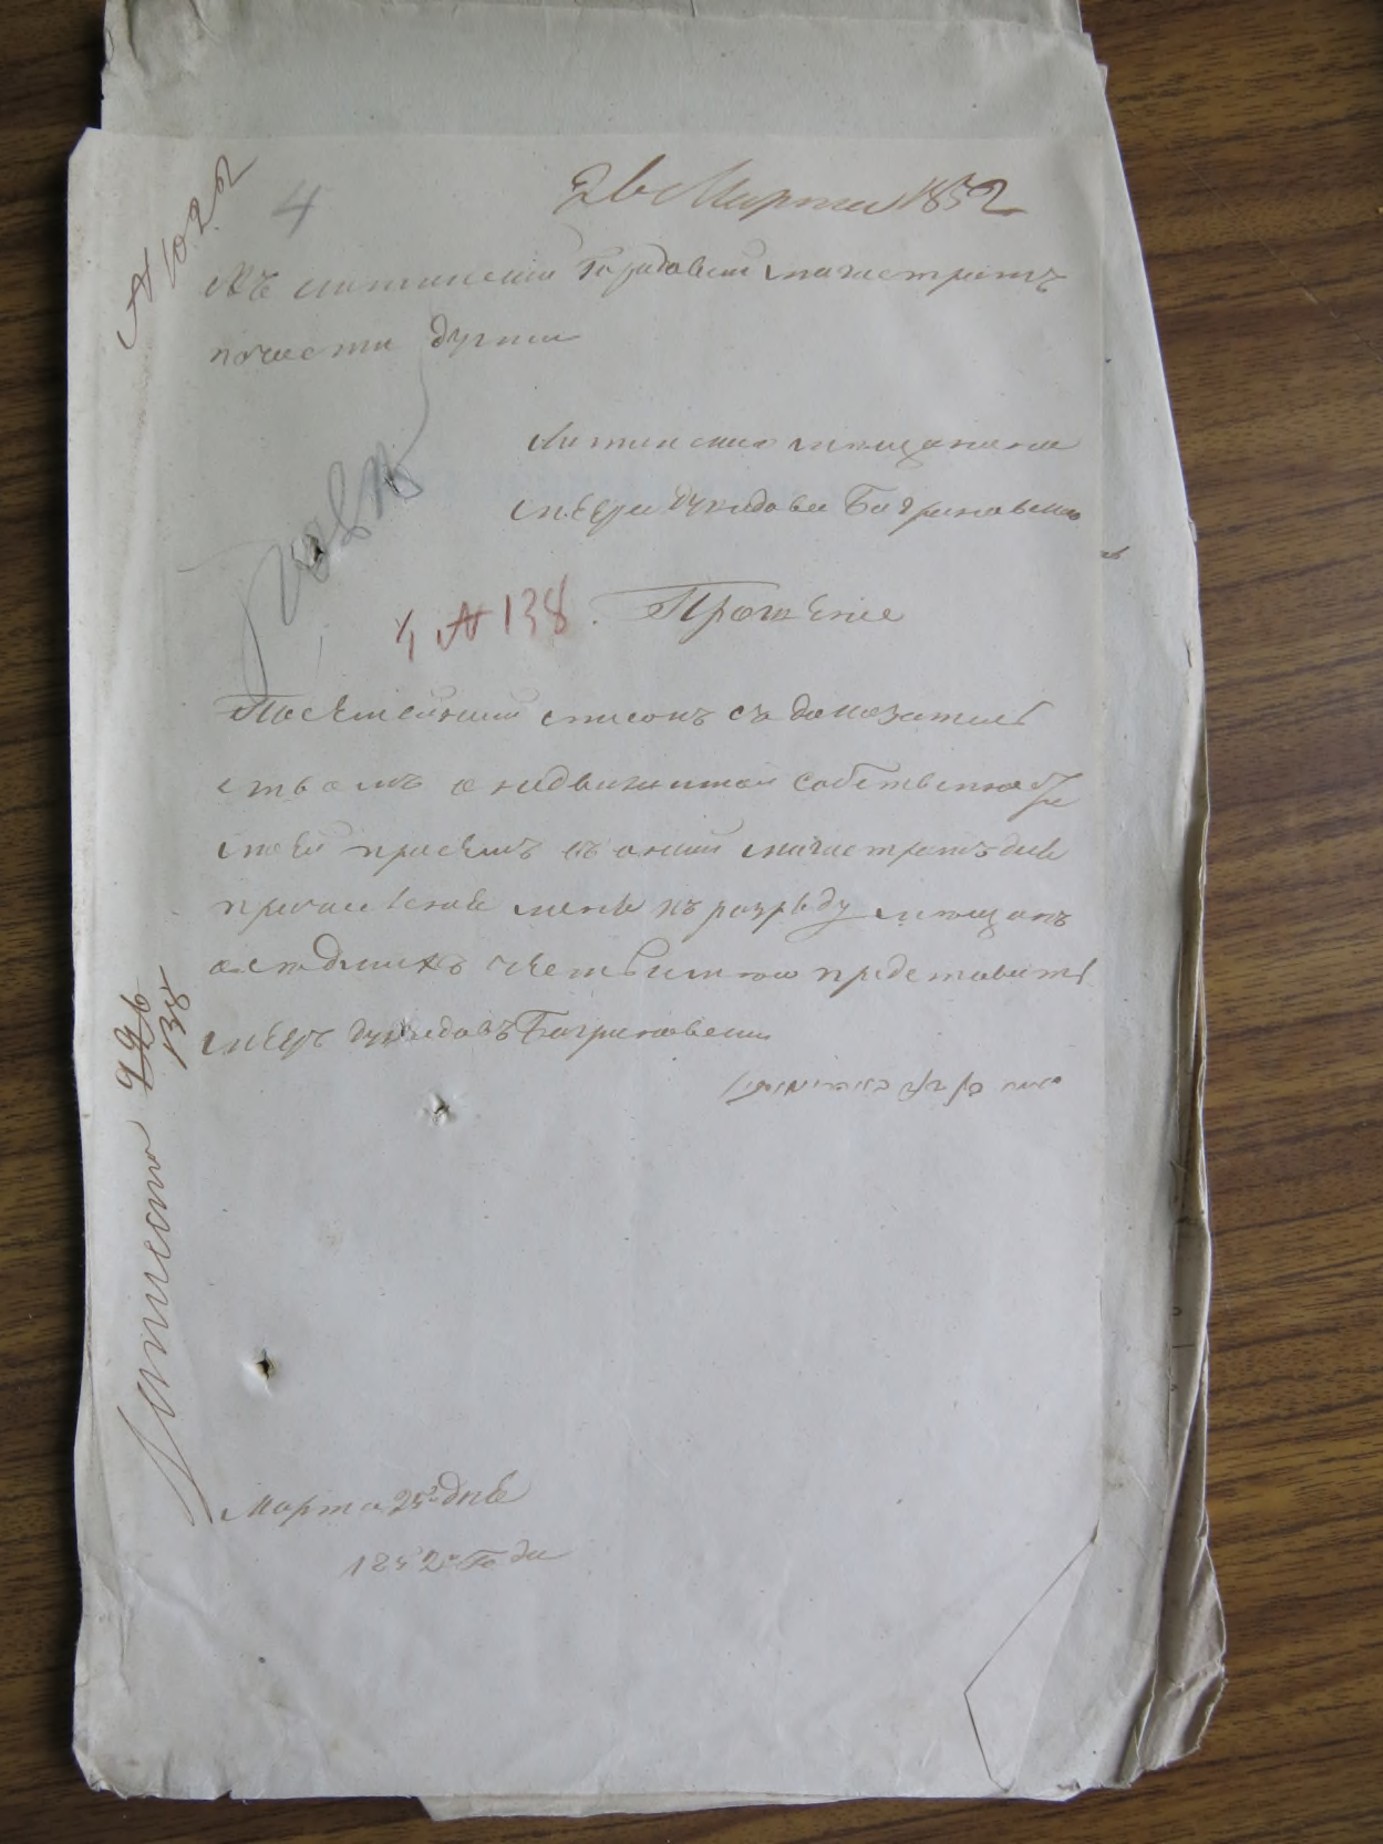 № 1022
4
26 Марта 1852
Въ Литинский Городовый магистратъ
по части думы
Литинского мещанина
Меера Дувидова Багриновского
4 № 138. Прошение
Посемейный списокъ съ доказатель
ствомъ о недвижимой собственности
моей при семъ въ оный магистратъ для
причисления меня къ разряду мещанъ
оседлыхъ честь имею представить
Меер Дувидовъ Багриновский
Марта 25 дня
1852 Года
226
138